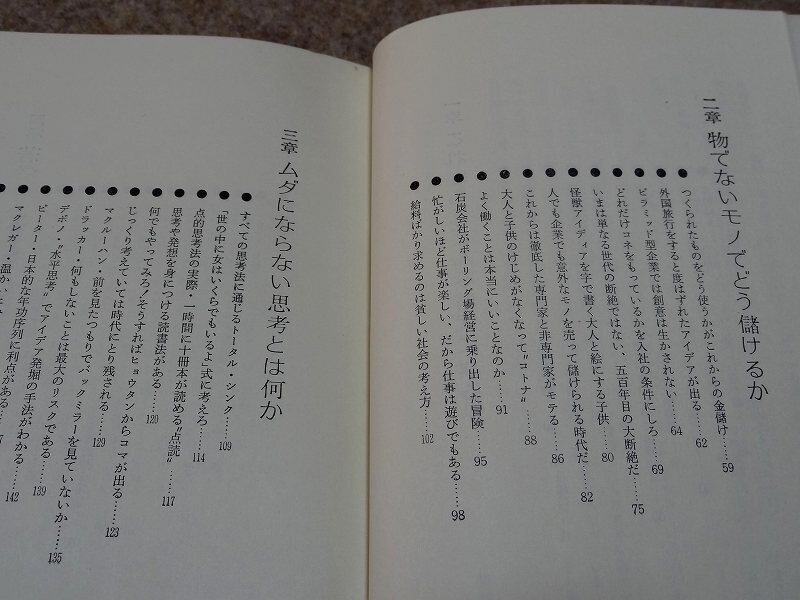 二章 物でないモノでどう儲けるか
●つくられたものをどう使うかがこれからの金儲け……59
●外国旅行をすると度はずれたアイデアが出る……62
●ピラミッド型企業では創意は生かされない……64
●どれだけコネをもっているかを入社の条件にしろ……69
●いまは単なる世代の断絶ではない、五百年目の大断絶だ……75
●怪獣アイディアを字で書く大人と絵にする子供……80
●人でも企業でも意外なモノを売って儲けられる時代だ……82
●これからは徹底した専門家と非専門家がモテる……86
●大人と子供のけじめがなくなって〝コトナ〟……88
●よく働くことは本当にいいことなのか……91
●石炭会社がボーリング場経営に乗り出した冒険……95
●忙がしいほど仕事が楽しい、だから仕事は遊びでもある……98
●給料ばかり求めるのは貧しい社会の考え方……102
三章 ムダにならない思考とは何か
●すべての思考法に通じるトータル・シンク……109
●「世の中に女はいくらでもいるよ」式に考えろ……114
●点的思考法の実際・一時間に十冊本が読める〝点読〟……117
●思考や発想を身につける読書法がある……120
●何でもやってみろ！そうすればヒョウタンからコマが出る……123
●じっくり考えていては時代にとり残される……129
●マクルーハン・前を見たつもりでバックミラーを見ていないか……135
●ドラッカー・何もしないことは最大のリスクである……139
●デボノ・〝水平思考〟でアイデア発堀の手法がわかる……142
●ピーター・日本的な年功序列に利点がある……
マクレガー・温か